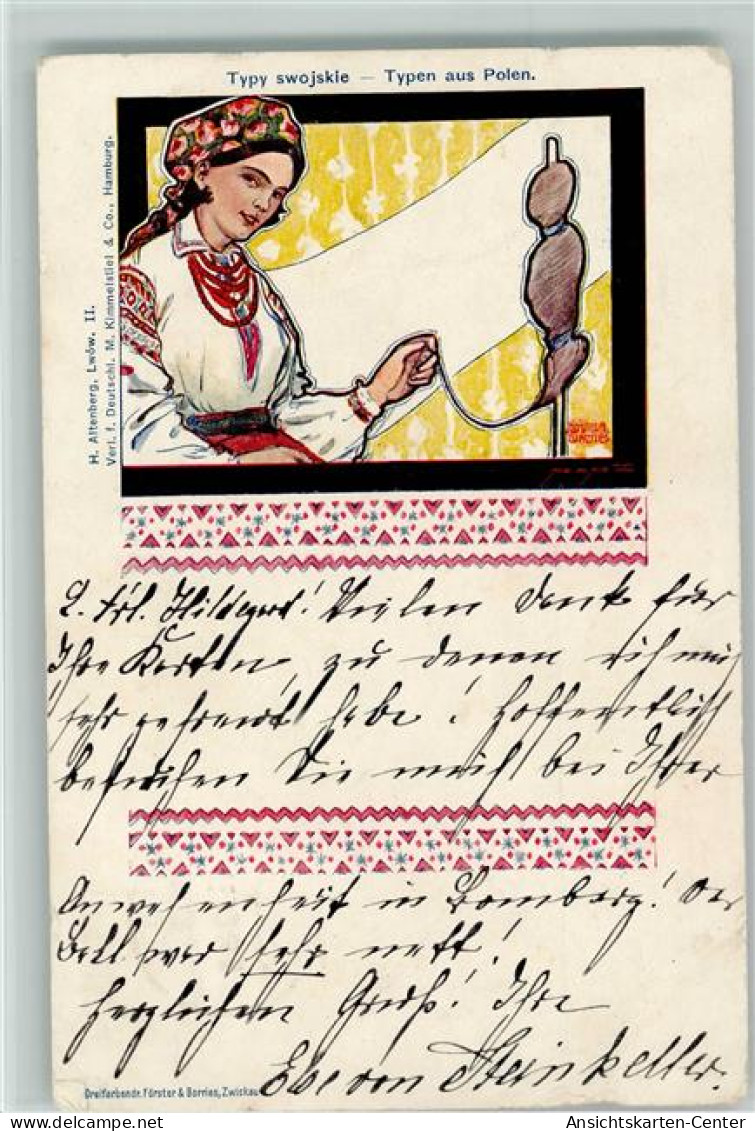 Typy swojskie — Typen aus Polen.
H. Altenberg, Lwów. II.
Verl. f. Deutschl. M. Kimmelstiel & Co., Hamburg.
L. Frl. Hildegard! Vielen Dank für
Ihre Karten, zu denen ich mich
sehr gefreut habe! Hoffentlich
besuchen Sie mich bei Ihrer
Anwesenheit in Bromberg! Der
Ball war sehr nett!
Herzlichen Gruß! Ihre
Else von Steinkeller.
Dreifarbendr. Förster & Borries, Zwickau
Ansichtskarten-Center